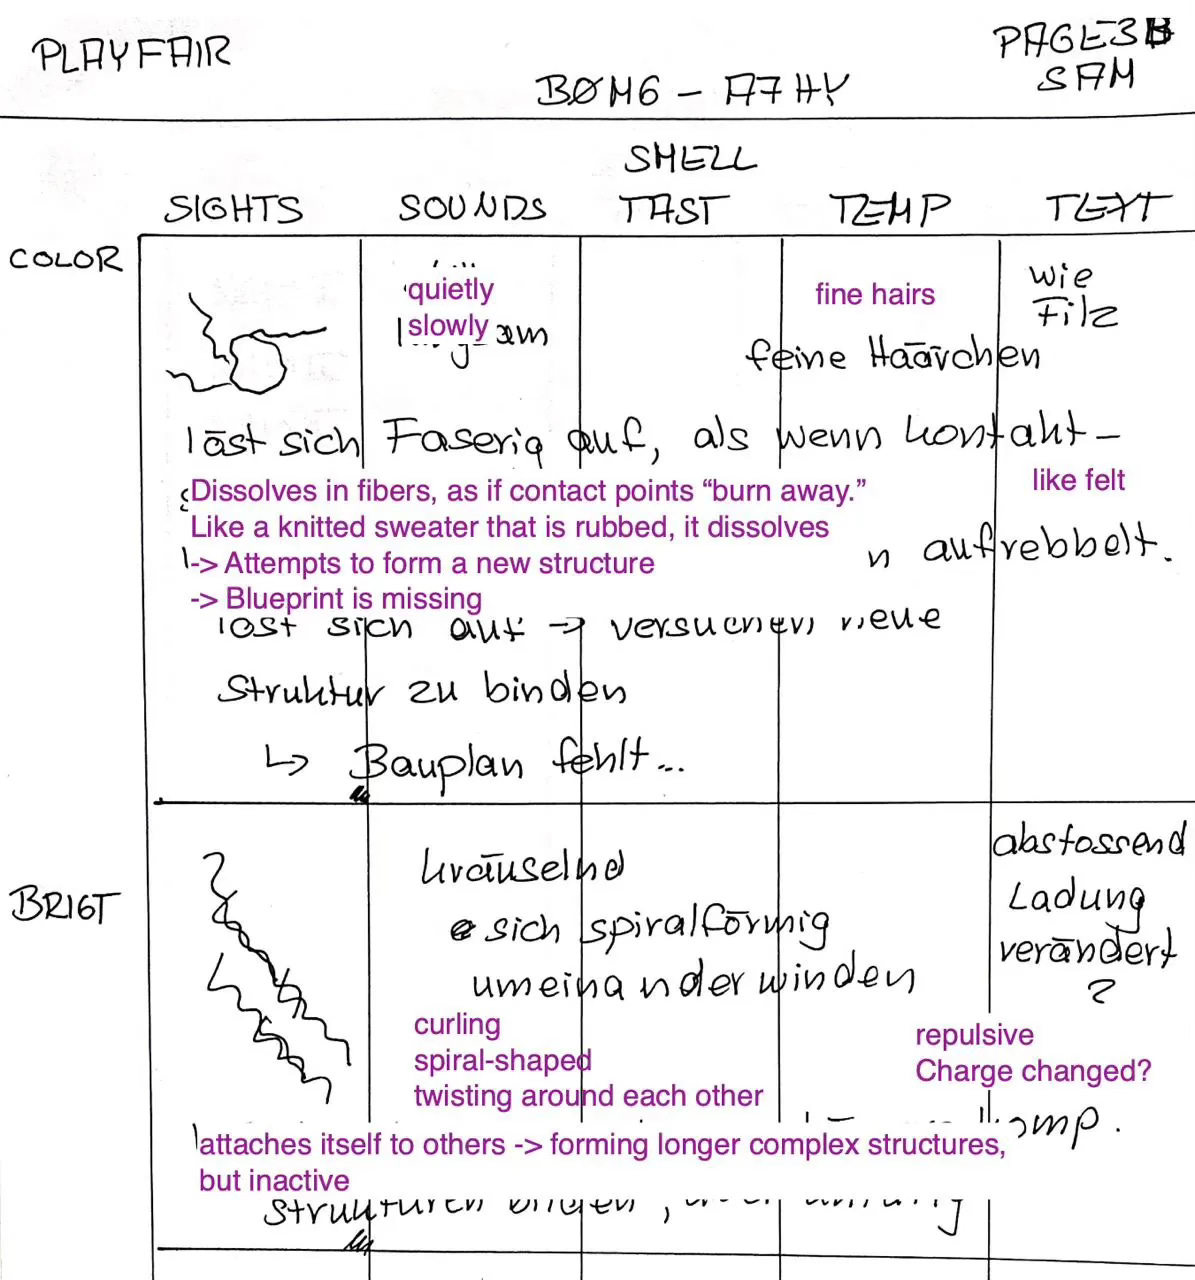 PLAYFAIR
PAGE3B
SAM
BØM6 - A7HY
SIGHTS
SOUNDS
SMELL
TAST
TEMP
TEXT
COLOR
quietly
slowly
fine hairs
wie
Filz
feine Häärchen
löst sich Faserig auf, als wenn Kontakt-
like felt
Dissolves in fibers, as if contact points “burn away.”
Like a knitted sweater that is rubbed, it dissolves
-> Attempts to form a new structure
-> Blueprint is missing
aufrebbelt.
löst sich auf → versuchen neue
Struktur zu binden
↳ Bauplan fehlt...
BRIGT
kräuselnd
sich spiralförmig
umeinander winden
abstossend
Ladung
verändert
?
curling
spiral-shaped
twisting around each other
repulsive
Charge changed?
attaches itself to others -> forming longer complex structures,
but inactive
Strukturen